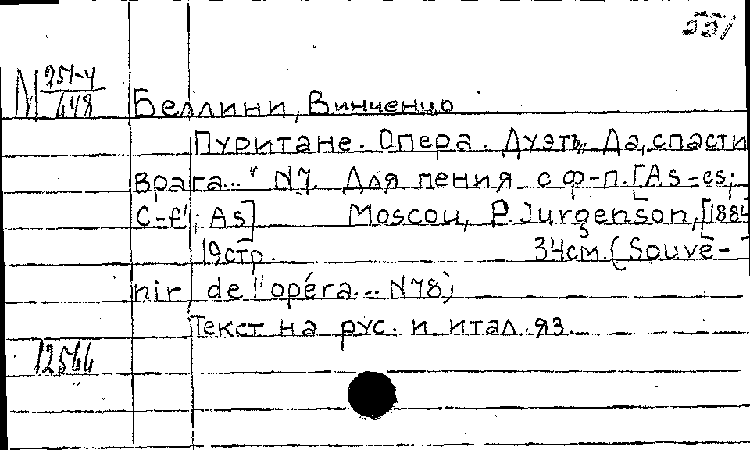 551
М 251-4
648
Беллини, Винченцо
Пуритане. Опера. Дуэтъ „Да, спасти
врага..." N7. Для пения с ф-п. [As-es;
C-f'; As] Moscou, P. Jurgenson, [1884
19стр. 34см. (Souve-
nir de l'opéra... N78)
Текст на рус. и итал. яз.
12544